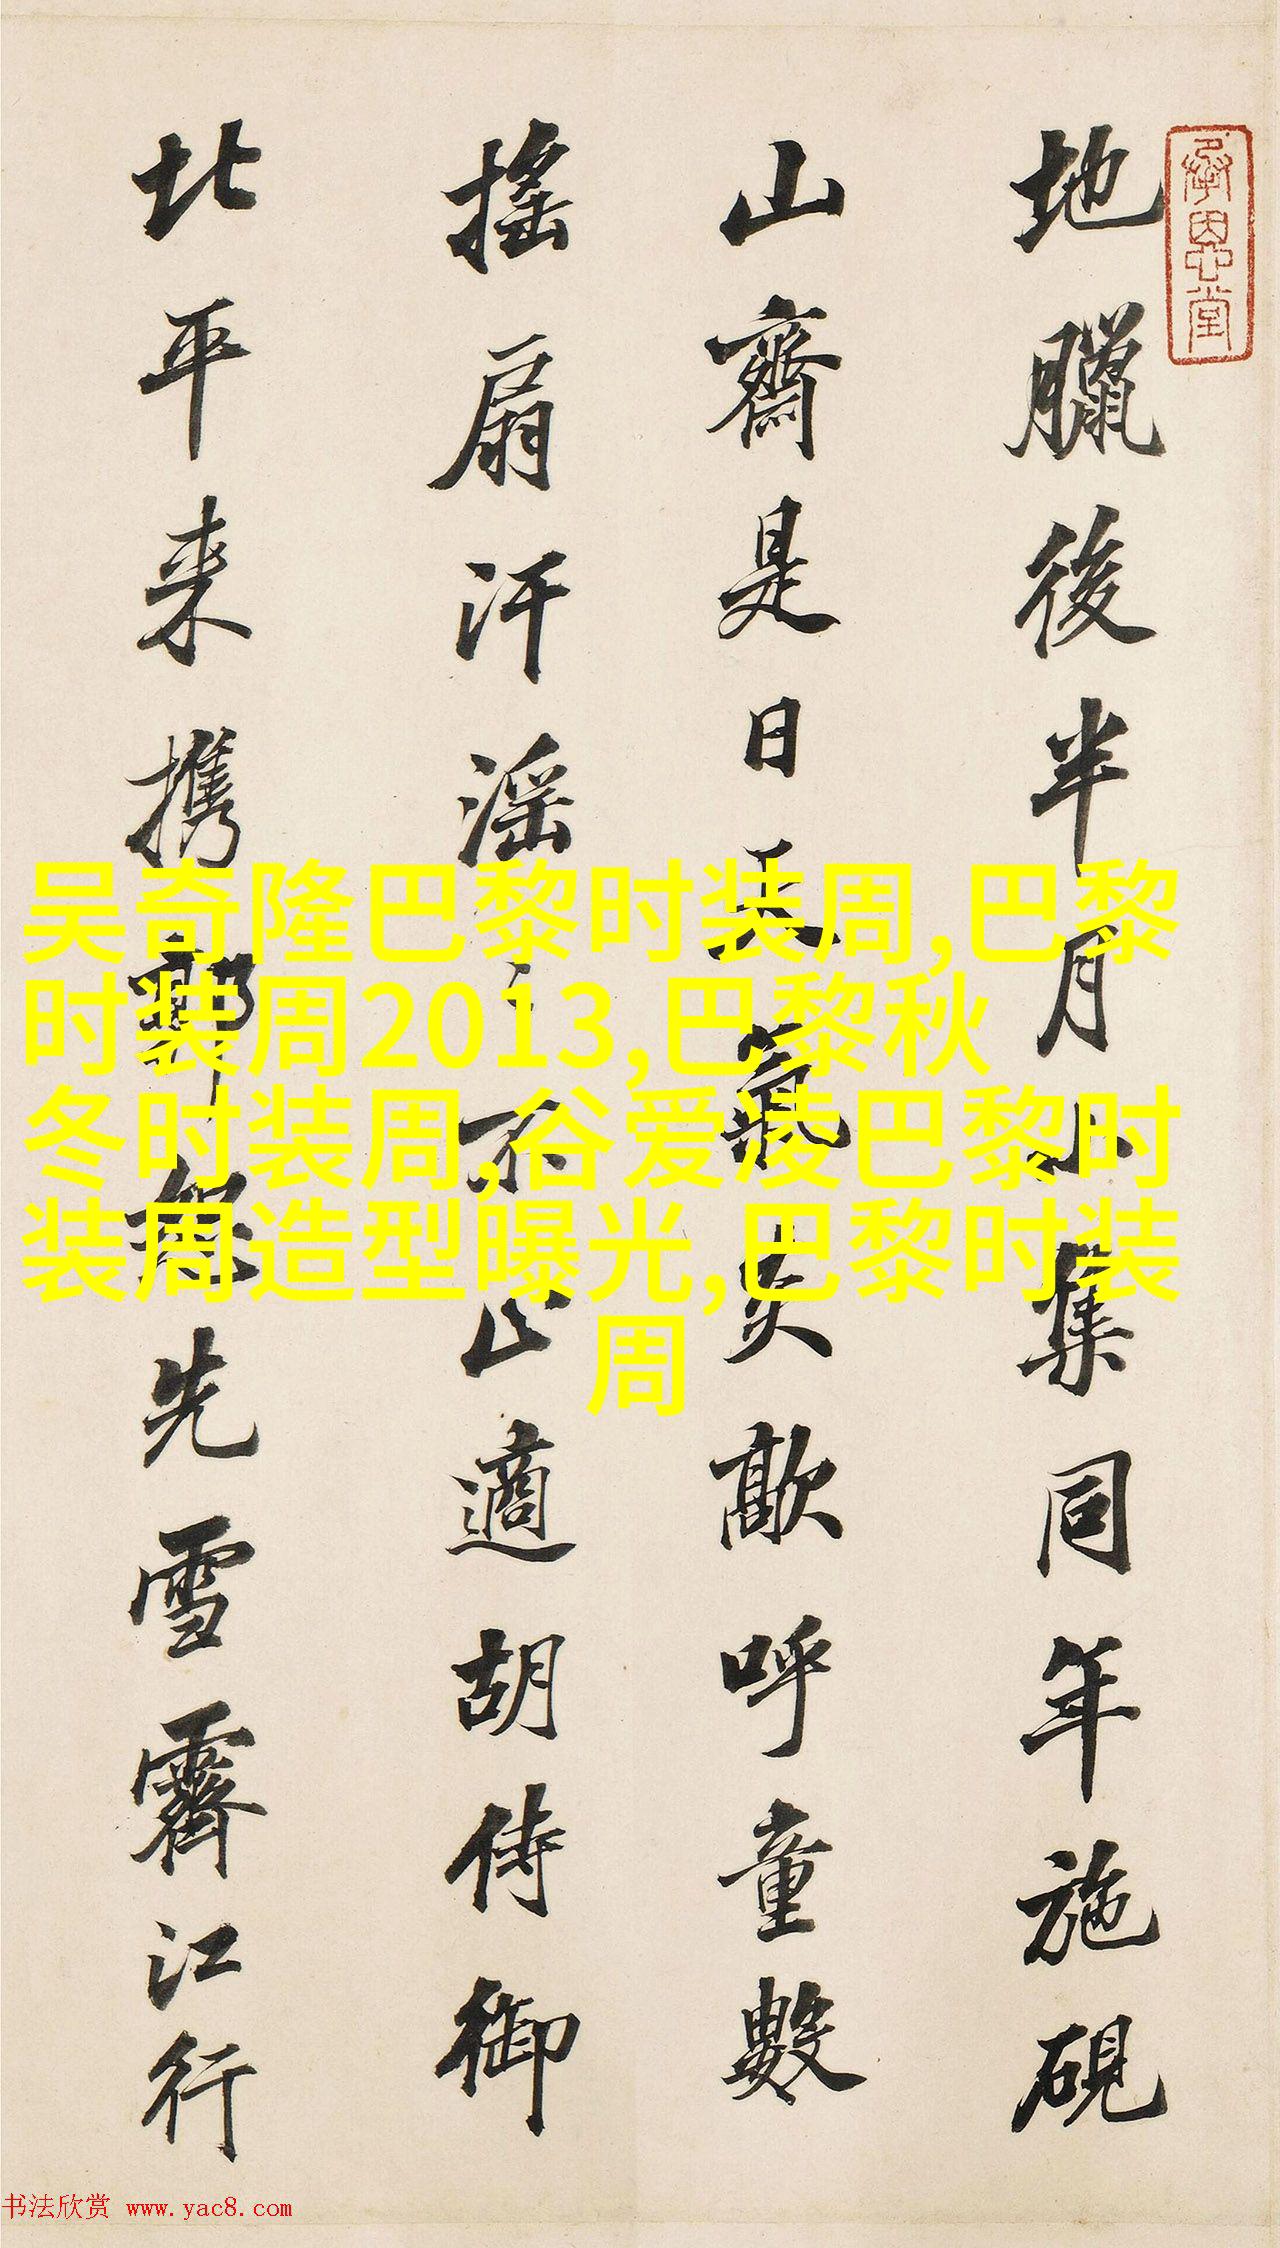 承恩堂
地臘後半月小集同年施硯
山齋是日天氣炎歊呼童數
搖扇汗淫淫不止適胡侍御
北平来攜郭熙先雪霽江行
吴奇隆巴黎时装周,巴黎
时装周2013,巴黎秋
冬时装周,谷爱凌巴黎时
装周造型曝光,巴黎时装
周
书法欣赏 www.yac8.com